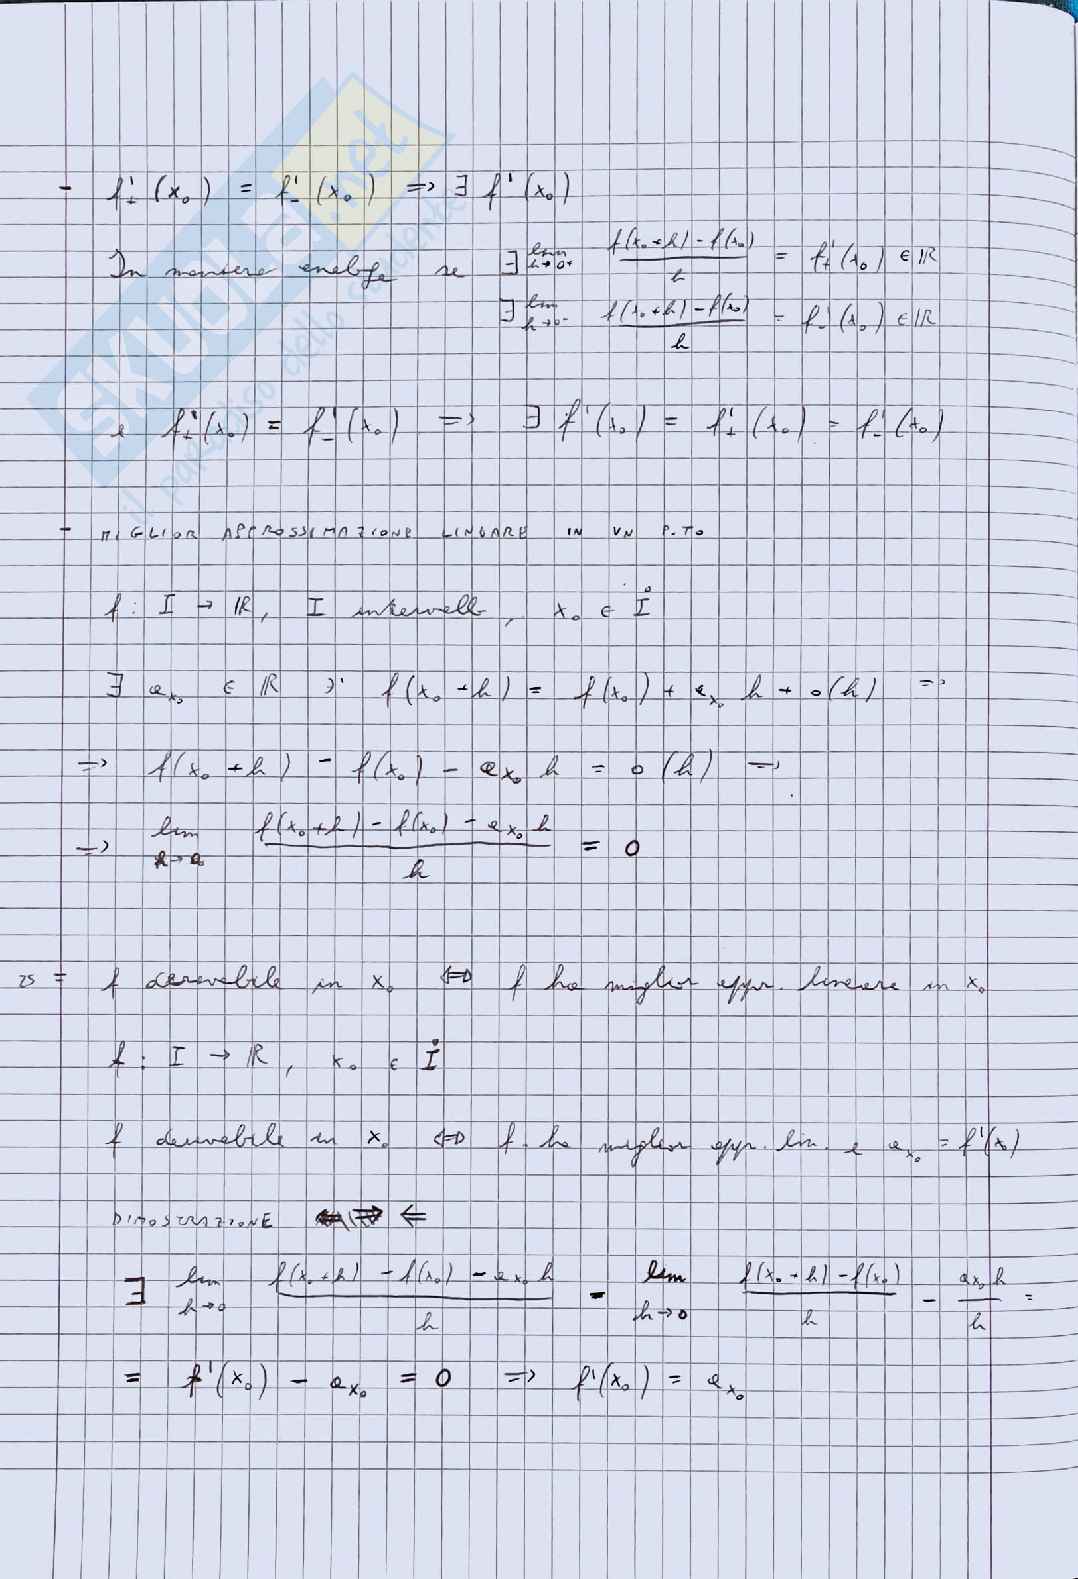 - f'₊(x₀) = f'₋(x₀) => ∃ f'(x₀)
In maniera analoga se ∃ lim h→0⁺ (f(x₀+h) - f(x₀))/h = f'₊(x₀) ∈ ℝ
∃ lim h→0⁻ (f(x₀+h) - f(x₀))/h = f'₋(x₀) ∈ ℝ
e f'₊(x₀) = f'₋(x₀) => ∃ f'(x₀) = f'₊(x₀) = f'₋(x₀)
- MIGLIOR APPROSSIMAZIONE LINEARE IN UN P.TO
f : I → ℝ, I intervallo, x₀ ∈ I̊
∃ a_x₀ ∈ ℝ ∋' f(x₀+h) = f(x₀) + a_x₀ h + o(h) =>
=> f(x₀+h) - f(x₀) - a_x₀ h = o(h) =>
=> lim h→0 (f(x₀+h) - f(x₀) - a_x₀ h)/h = 0
25 = f derivabile in x₀ <=> f ha miglior appr. lineare in x₀
f : I → ℝ, x₀ ∈ I̊
f derivabile in x₀ <=> f ha miglior appr. lin. e a_x₀ = f'(x₀)
DIMOSTRAZIONE ⇐
∃ lim h→0 (f(x₀+h) - f(x₀) - a_x₀ h)/h = lim h→0 (f(x₀+h) - f(x₀))/h - (a_x₀ h)/h =
= f'(x₀) - a_x₀ = 0 => f'(x₀) = a_x₀
SKUOLA.net
il paradiso dello studente